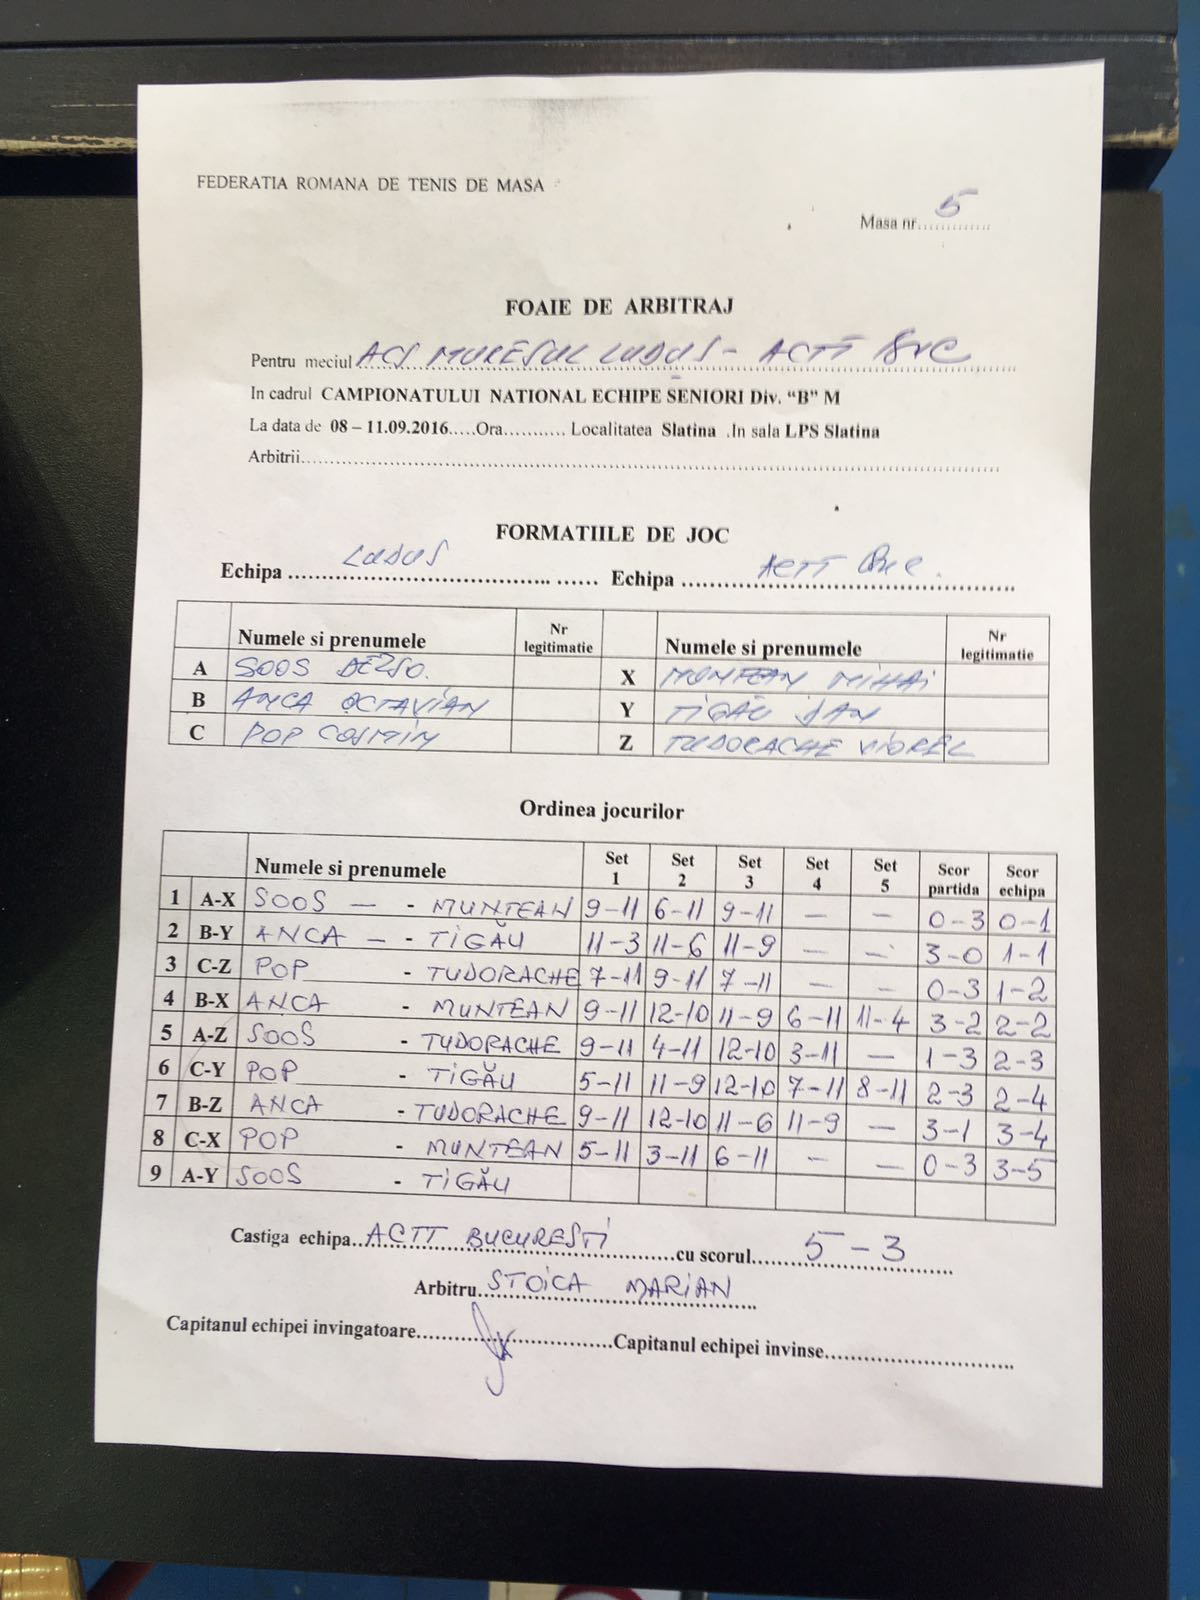 FEDERATIA ROMANA DE TENIS DE MASA
Masa nr. 5
FOAIE DE ARBITRAJ
Pentru meciul ACS MURESUL LUDUS - ACTT BUC
In cadrul CAMPIONATULUI NATIONAL ECHIPE SENIORI Div. “B” M
La data de 08 – 11.09.2016.....Ora........... Localitatea Slatina .In sala LPS Slatina
Arbitrii
FORMATIILE DE JOC
Echipa LUDUS Echipa ACTT BUC.
Numele si prenumele Nr legitimatie Numele si prenumele Nr legitimatie
A SOOS DEZSO. X MUNTEAN MIHAI
B ANCA OCTAVIAN Y TIGĂU DAN
C POP COSMIN Z TUDORACHE VIOREL
Ordinea jocurilor
Numele si prenumele Set 1 Set 2 Set 3 Set 4 Set 5 Scor partida Scor echipa
1 A-X SOOS — - MUNTEAN 9-11 6-11 9-11 — — 0-3 0-1
2 B-Y ANCA — - TIGĂU 11-3 11-6 11-9 — — 3-0 1-1
3 C-Z POP - TUDORACHE 7-11 9-11 7-11 — — 0-3 1-2
4 B-X ANCA - MUNTEAN 9-11 12-10 11-9 6-11 11-4 3-2 2-2
5 A-Z SOOS - TUDORACHE 9-11 4-11 12-10 3-11 — 1-3 2-3
6 C-Y POP - TIGĂU 5-11 11-9 12-10 7-11 8-11 2-3 2-4
7 B-Z ANCA - TUDORACHE 9-11 12-10 11-6 11-9 — 3-1 3-4
8 C-X POP - MUNTEAN 5-11 3-11 6-11 — — 0-3 3-5
9 A-Y SOOS - TIGĂU
Castiga echipa ACTT BUCURESTI cu scorul 5-3
Arbitru STOICA MARIAN
Capitanul echipei invingatoare Capitanul echipei invinse